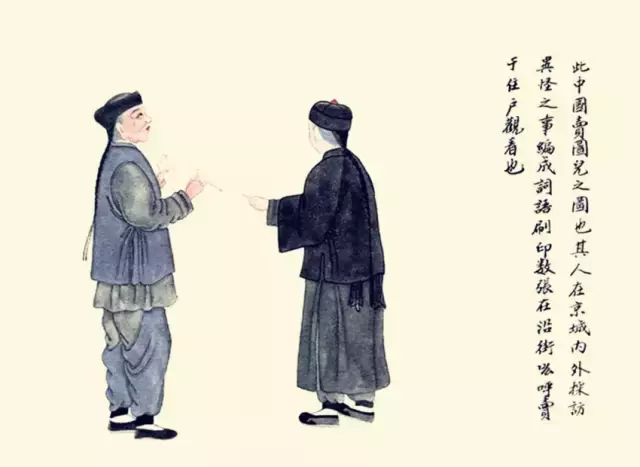 此中國賣圖兒之圖也其人在京城内外採訪
異怪之事編成詞語刷印數張在沿街吆呼賣
于住户觀看也